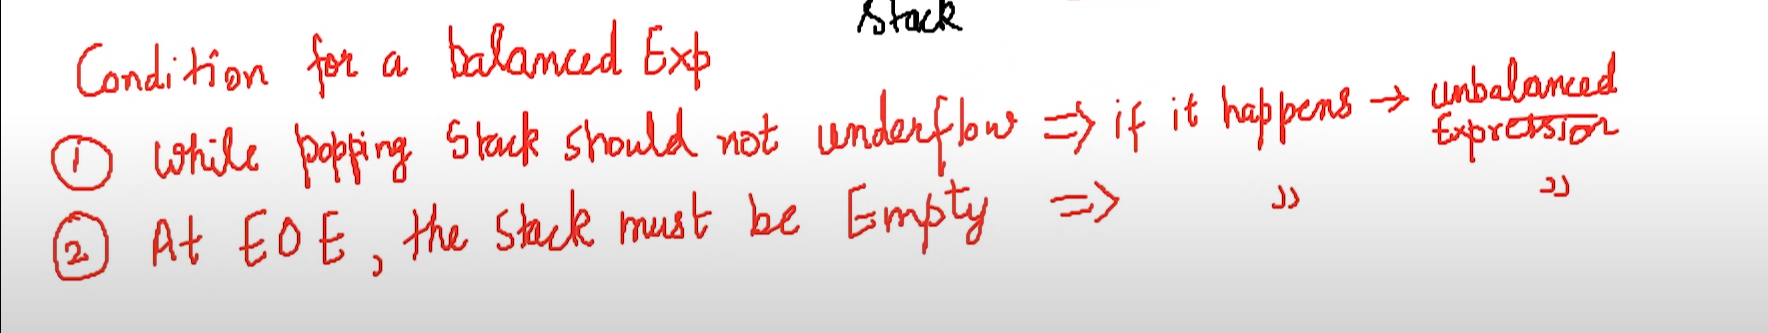 Stack
Condition for a balanced Exp
① While popping Stack should not underflow => if it happens → unbalanced
Expression
② At EOE, the stack must be Empty => ,, ,,